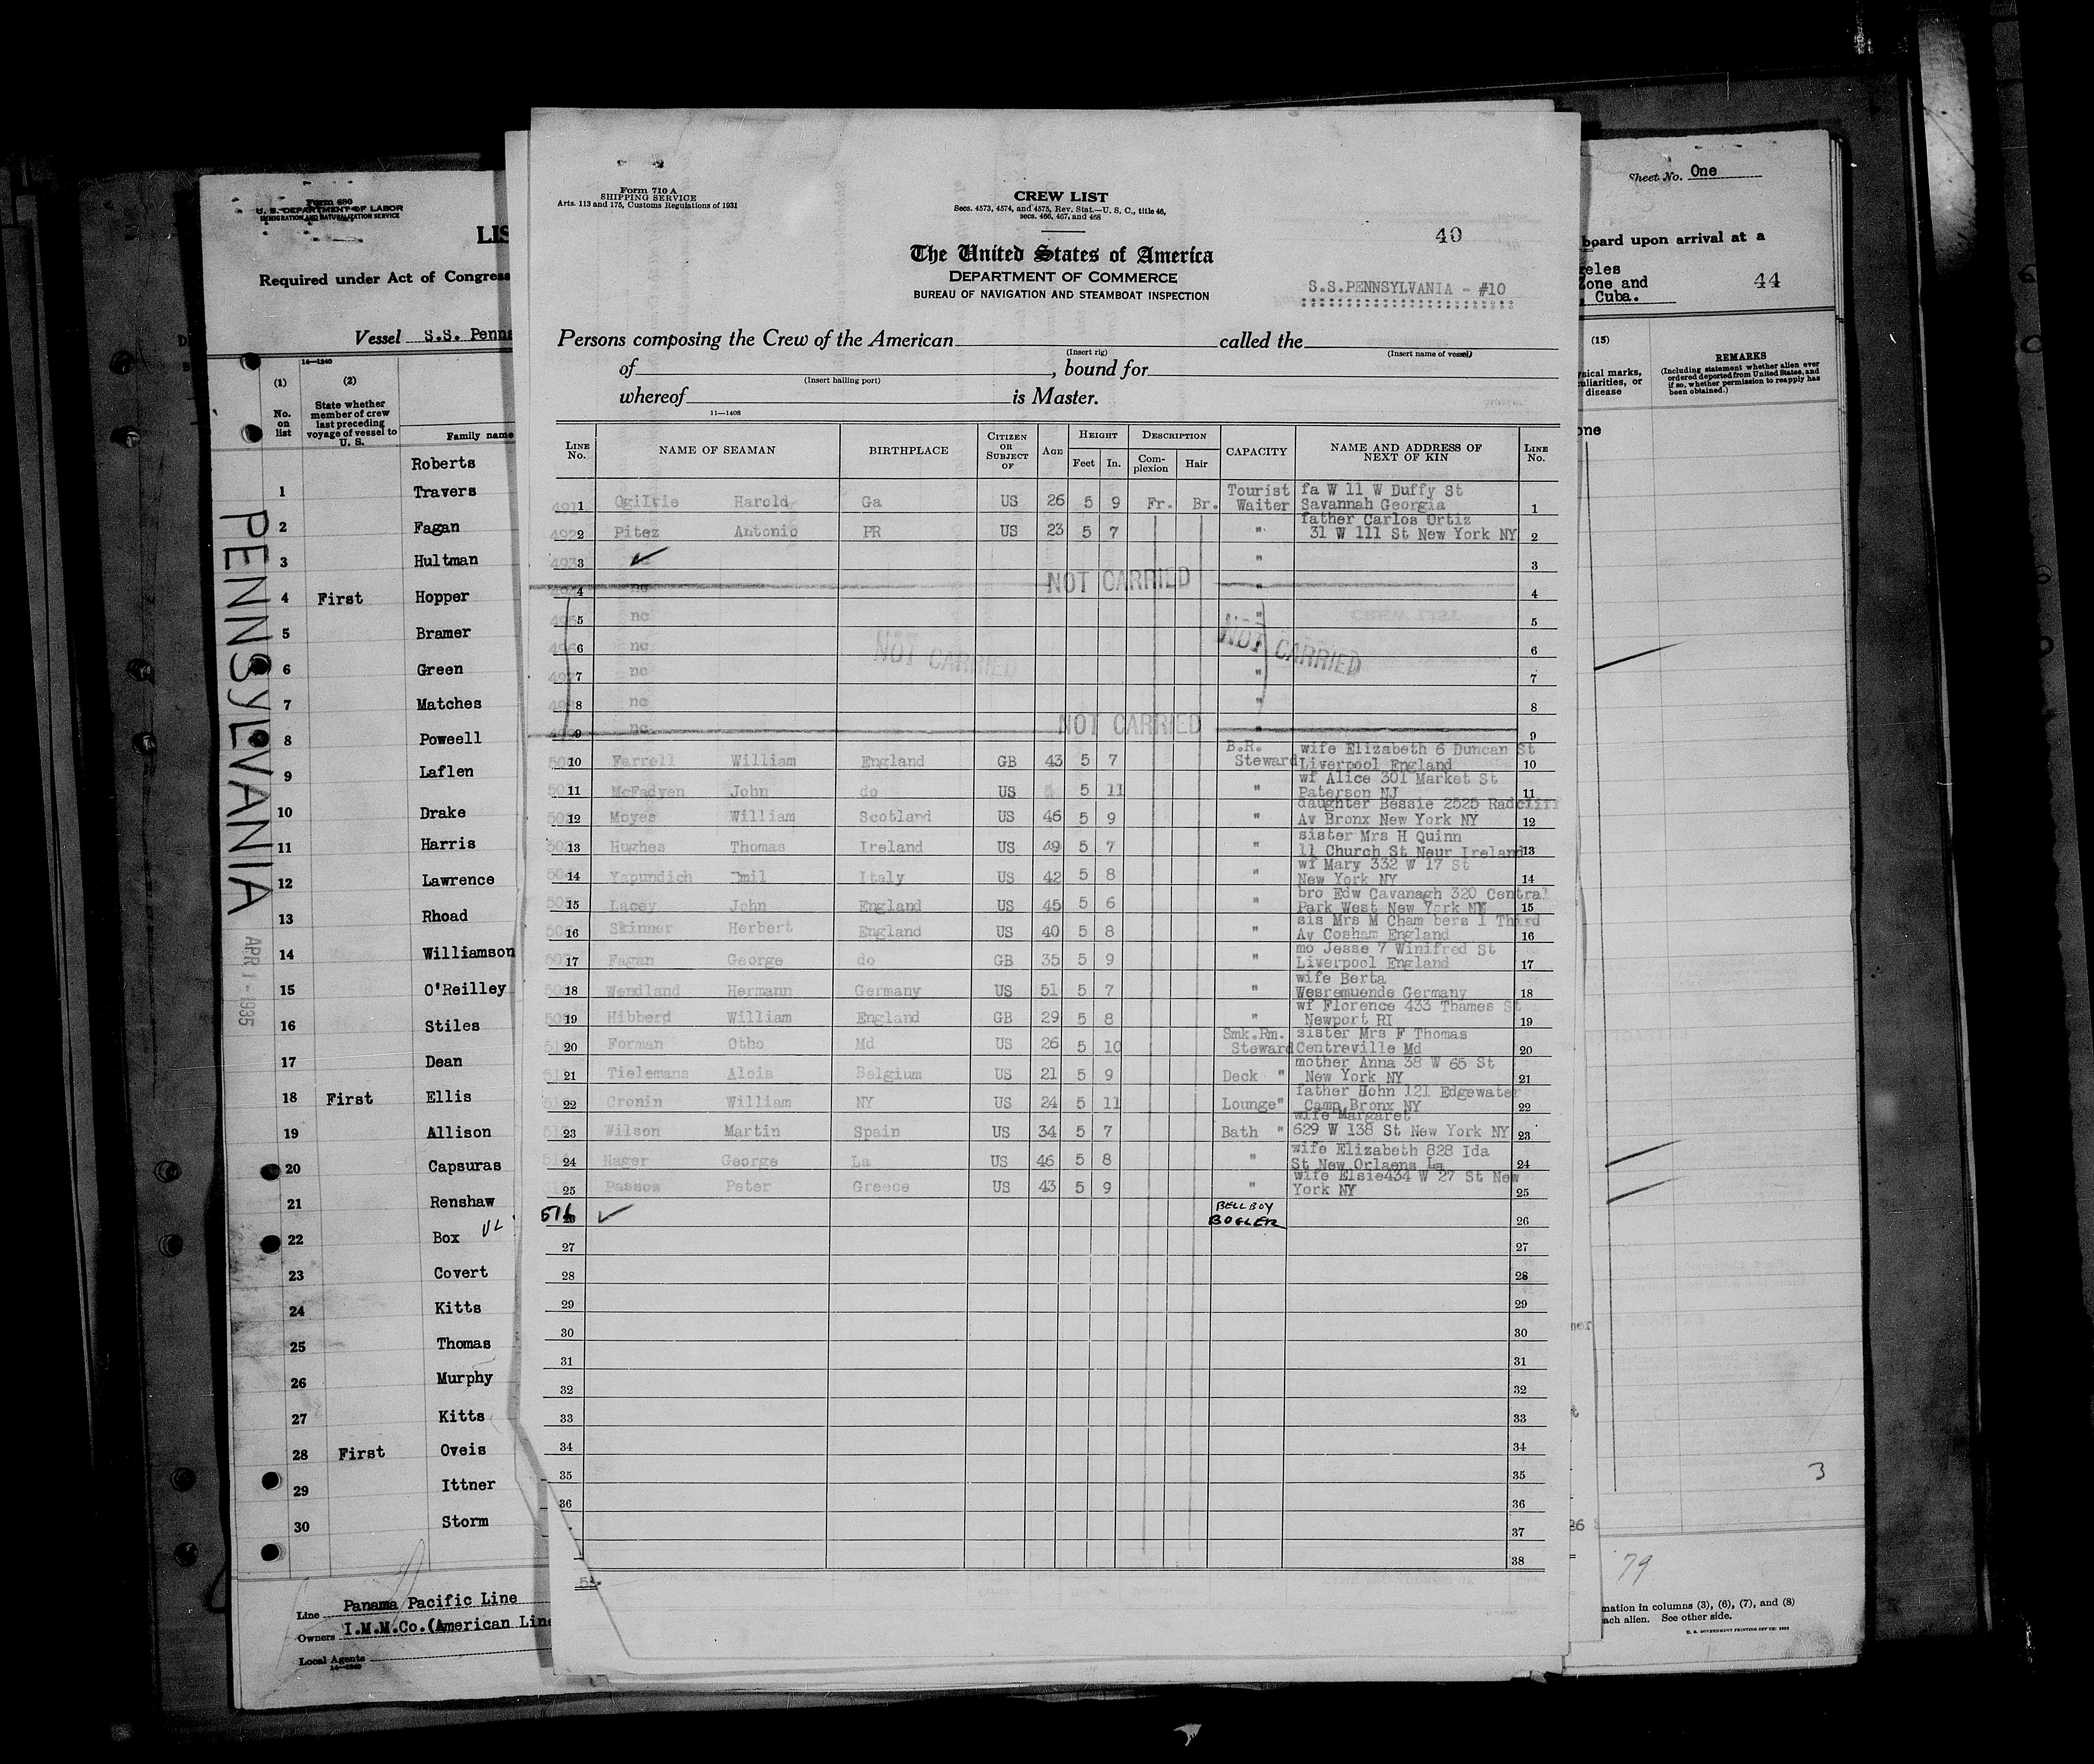 Form 680
U. S. DEPARTMENT OF LABOR
IMMIGRATION AND NATURALIZATION SERVICE
LIS
Required under Act of Congress
Vessel S.S. Penns
14—1240
(1) (2)
No. on list
State whether member of crew last preceding voyage of vessel to U. S.
Family name
Roberts
1 Travers
2 Fagan
3 Hultman
4 First Hopper
5 Bramer
6 Green
7 Matches
8 Poweell
9 Laflen
10 Drake
11 Harris
12 Lawrence
13 Rhoad
14 Williamson
15 O'Reilley
16 Stiles
17 Dean
18 First Ellis
19 Allison
20 Capsuras
21 Renshaw
22 Box
23 Covert
24 Kitts
25 Thomas
26 Murphy
27 Kitts
28 First Oveis
29 Ittner
30 Storm
PENNSYLVANIA
APR 1 - 1935
Line Panama Pacific Line
Owners I.M.M.Co.(American Line
Local Agents
Form 710 A
SHIPPING SERVICE
Arts. 113 and 175, Customs Regulations of 1931
CREW LIST
Secs. 4573, 4574, and 4575, Rev. Stat.—U. S. C., title 46,
secs. 466, 467, and 468
The United States of America
DEPARTMENT OF COMMERCE
BUREAU OF NAVIGATION AND STEAMBOAT INSPECTION
40
S.S.PENNSYLVANIA - #10
Persons composing the Crew of the American called the
(Insert rig) (Insert name of vessel)
of , bound for
(Insert hailing port)
whereof is Master.
11—1408
LINE No. NAME OF SEAMAN BIRTHPLACE CITIZEN OR SUBJECT OF AGE HEIGHT Feet In. DESCRIPTION Complexion Hair CAPACITY NAME AND ADDRESS OF NEXT OF KIN LINE No.
Tourist fa W 11 W Duffy St
1 Ogilvie Harold Ga US 26 5 9 Fr. Br. Waiter Savannah Georgia 1
father Carlos Ortiz
2 Pitez Antonio PR US 23 5 7 " 31 W 111 St New York NY 2
3 " 3
4 nc NOT CARRIED " 4
5 nc " 5
6 nc NOT CARRIED NOT CARRIED 6
7 nc " 7
8 nc " 8
9 nc NOT CARRIED " 9
B.R. wife Elizabeth 6 Duncan St
10 Farrell William England GB 43 5 7 Steward Liverpool England 10
wf Alice 301 Market St
11 McFadyen John do US 5 11 " Paterson NJ 11
daughter Bessie 2525 Radcliff
12 Moyes William Scotland US 46 5 9 " Av Bronx New York NY 12
sister Mrs H Quinn
13 Hughes Thomas Ireland US 49 5 7 " 11 Church St Neur Ireland 13
wf Mary 332 W 17 St
14 Yapundich Emil Italy US 42 5 8 " New York NY 14
bro Edw Cavanagh 320 Central
15 Lacey John England US 45 5 6 " Park West New York NY 15
sis Mrs M Cham bers 1 Third
16 Skinner Herbert England US 40 5 8 " Av Cosham England 16
mo Jesse 7 Winifred St
17 Fagan George do GB 35 5 9 " Liverpool England 17
wife Berta
18 Wendland Hermann Germany US 51 5 7 " Wesremuende Germany 18
wf Florence 433 Thames St
19 Hibberd William England GB 29 5 8 " Newport RI 19
Smk.Rm. sister Mrs F Thomas
20 Forman Otho Md US 26 5 10 Steward Centreville Md 20
mother Anna 38 W 65 St
21 Tielemans Alois Belgium US 21 5 9 Deck " New York NY 21
father Hohn 121 Edgewater
22 Cronin William NY US 24 5 11 Lounge" Camp Bronx NY 22
wife Margaret
23 Wilson Martin Spain US 34 5 7 Bath " 629 W 138 St New York NY 23
wife Elizabeth 828 Ida
24 Nager George La US 46 5 8 " St New Orlaens La 24
wife Elsie434 W 27 St New
25 Passos Peter Greece US 43 5 9 " York NY 25
516 BELLBOY
BOGLER 26
27 27
28 28
29 29
30 30
31 31
32 32
33 33
34 34
35 35
36 36
37
38
Sheet No. One
board upon arrival at a
geles
Zone and
Cuba.
44
(15)
sical marks,
uliarities, or
disease
REMARKS
(Including statement whether alien ever
ordered deported from United States, and
if so, whether permission to reapply has
been obtained.)
one
3
26
79
mation in columns (3), (6), (7), and (8)
ach alien. See other side.
U. S. GOVERNMENT PRINTING OFFICE: 1932